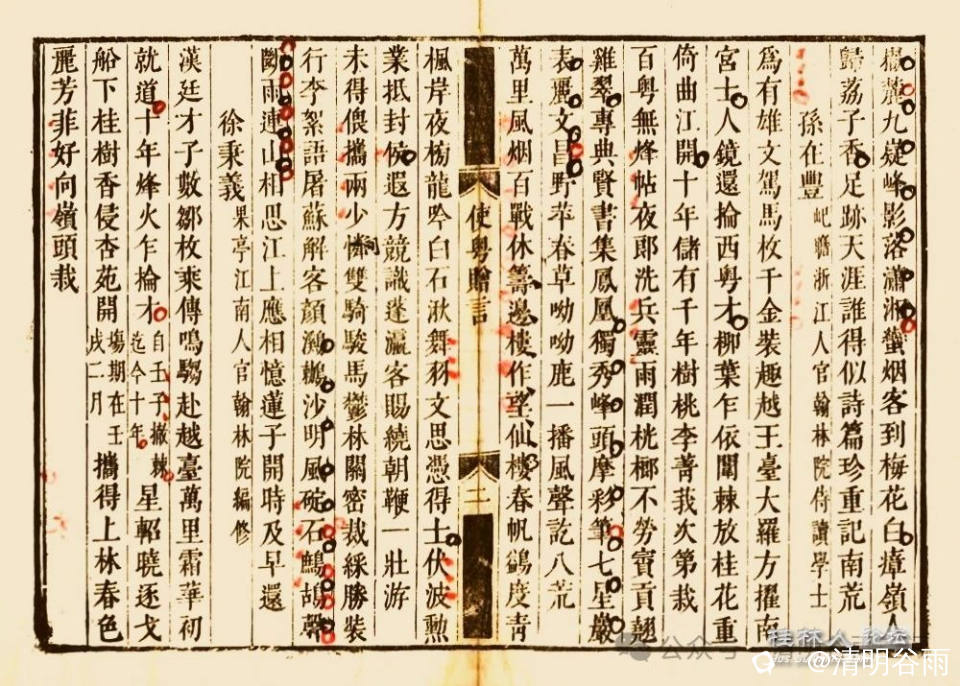 楊蕭九疑峰影落瀟湘蠻烟客到梅花白瘴嶺人
歸荔子香足跡天涯誰得似詩篇珍重記南荒
孫在豐 屺瞻浙江人官翰林院侍讀學士
爲有雄文駕馬枚千金裝趣越王臺大羅方擢南
宮士人鏡還掄西粤才柳葉乍依闈棘放桂花重
倚曲江開十年儲有千年樹桃李菁莪次第栽
百粤無烽帖夜郎洗兵靈雨潤桄榔不勞賓貢翹
雞翠專典賢書集鳳凰獨秀峰頭摩彩筆七星巖
表麗文昌野苹春草呦呦鹿一播風聲訖八荒
萬里風烟百戰休籌邊樓作望仙樓春帆鷁度靑
使粤贈言
二
楓岸夜榜龍吟白石湫舞羽文思憑得士伏波勳
業抵封侯遐方競識蓬瀛客賜繞朝鞭一壯游
未得偎攜兩少憐雙騎駿馬鬱林關密裁綵勝裝
行李絮語屠蘇解客顔瀨鵜沙明風碇石鷓鴣聲
斷雨連山相思江上應相憶蓮子開時及早還
徐秉義 果亭江南人官翰林院編修
漢廷才子敷鄒枚乘傳鳴騶赴越臺萬里霜華初
就道十年烽火乍掄才 自壬子撤棘迄今十年塲期在壬戌二月 星軺曉逐戈
船下桂樹香侵杏苑開 攜得上林春色
麗芳菲好向嶺頭栽
公众号
桂林人论坛
@清明谷雨